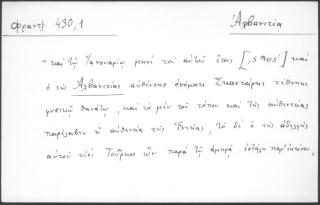 Φραντζ. 430,1
Ἀρβανιτία
"καὶ τῷ Ἰανουαρίῳ μηνὶ τοῦ αὐτοῦ ἔτους [,ς ϡοςʹ] καὶ
ὁ τῆς Ἀλβανιτίας αὐθέντης ὀνόματι Σκαντάρης τέθνηκε
φυσικῷ θανάτῳ, καὶ τὸ μὲν τοῦ τόπου καὶ τῆς αὐθεντείας
παρέλαβεν ἡ αὐθεντία τῆς Ἐνετίας, τὸ δὲ ὁ τῆς ἀδελφῆς
αὐτοῦ υἱὸς Τοῦρκος ὢν παρὰ τοῦ ἀμηρᾶ